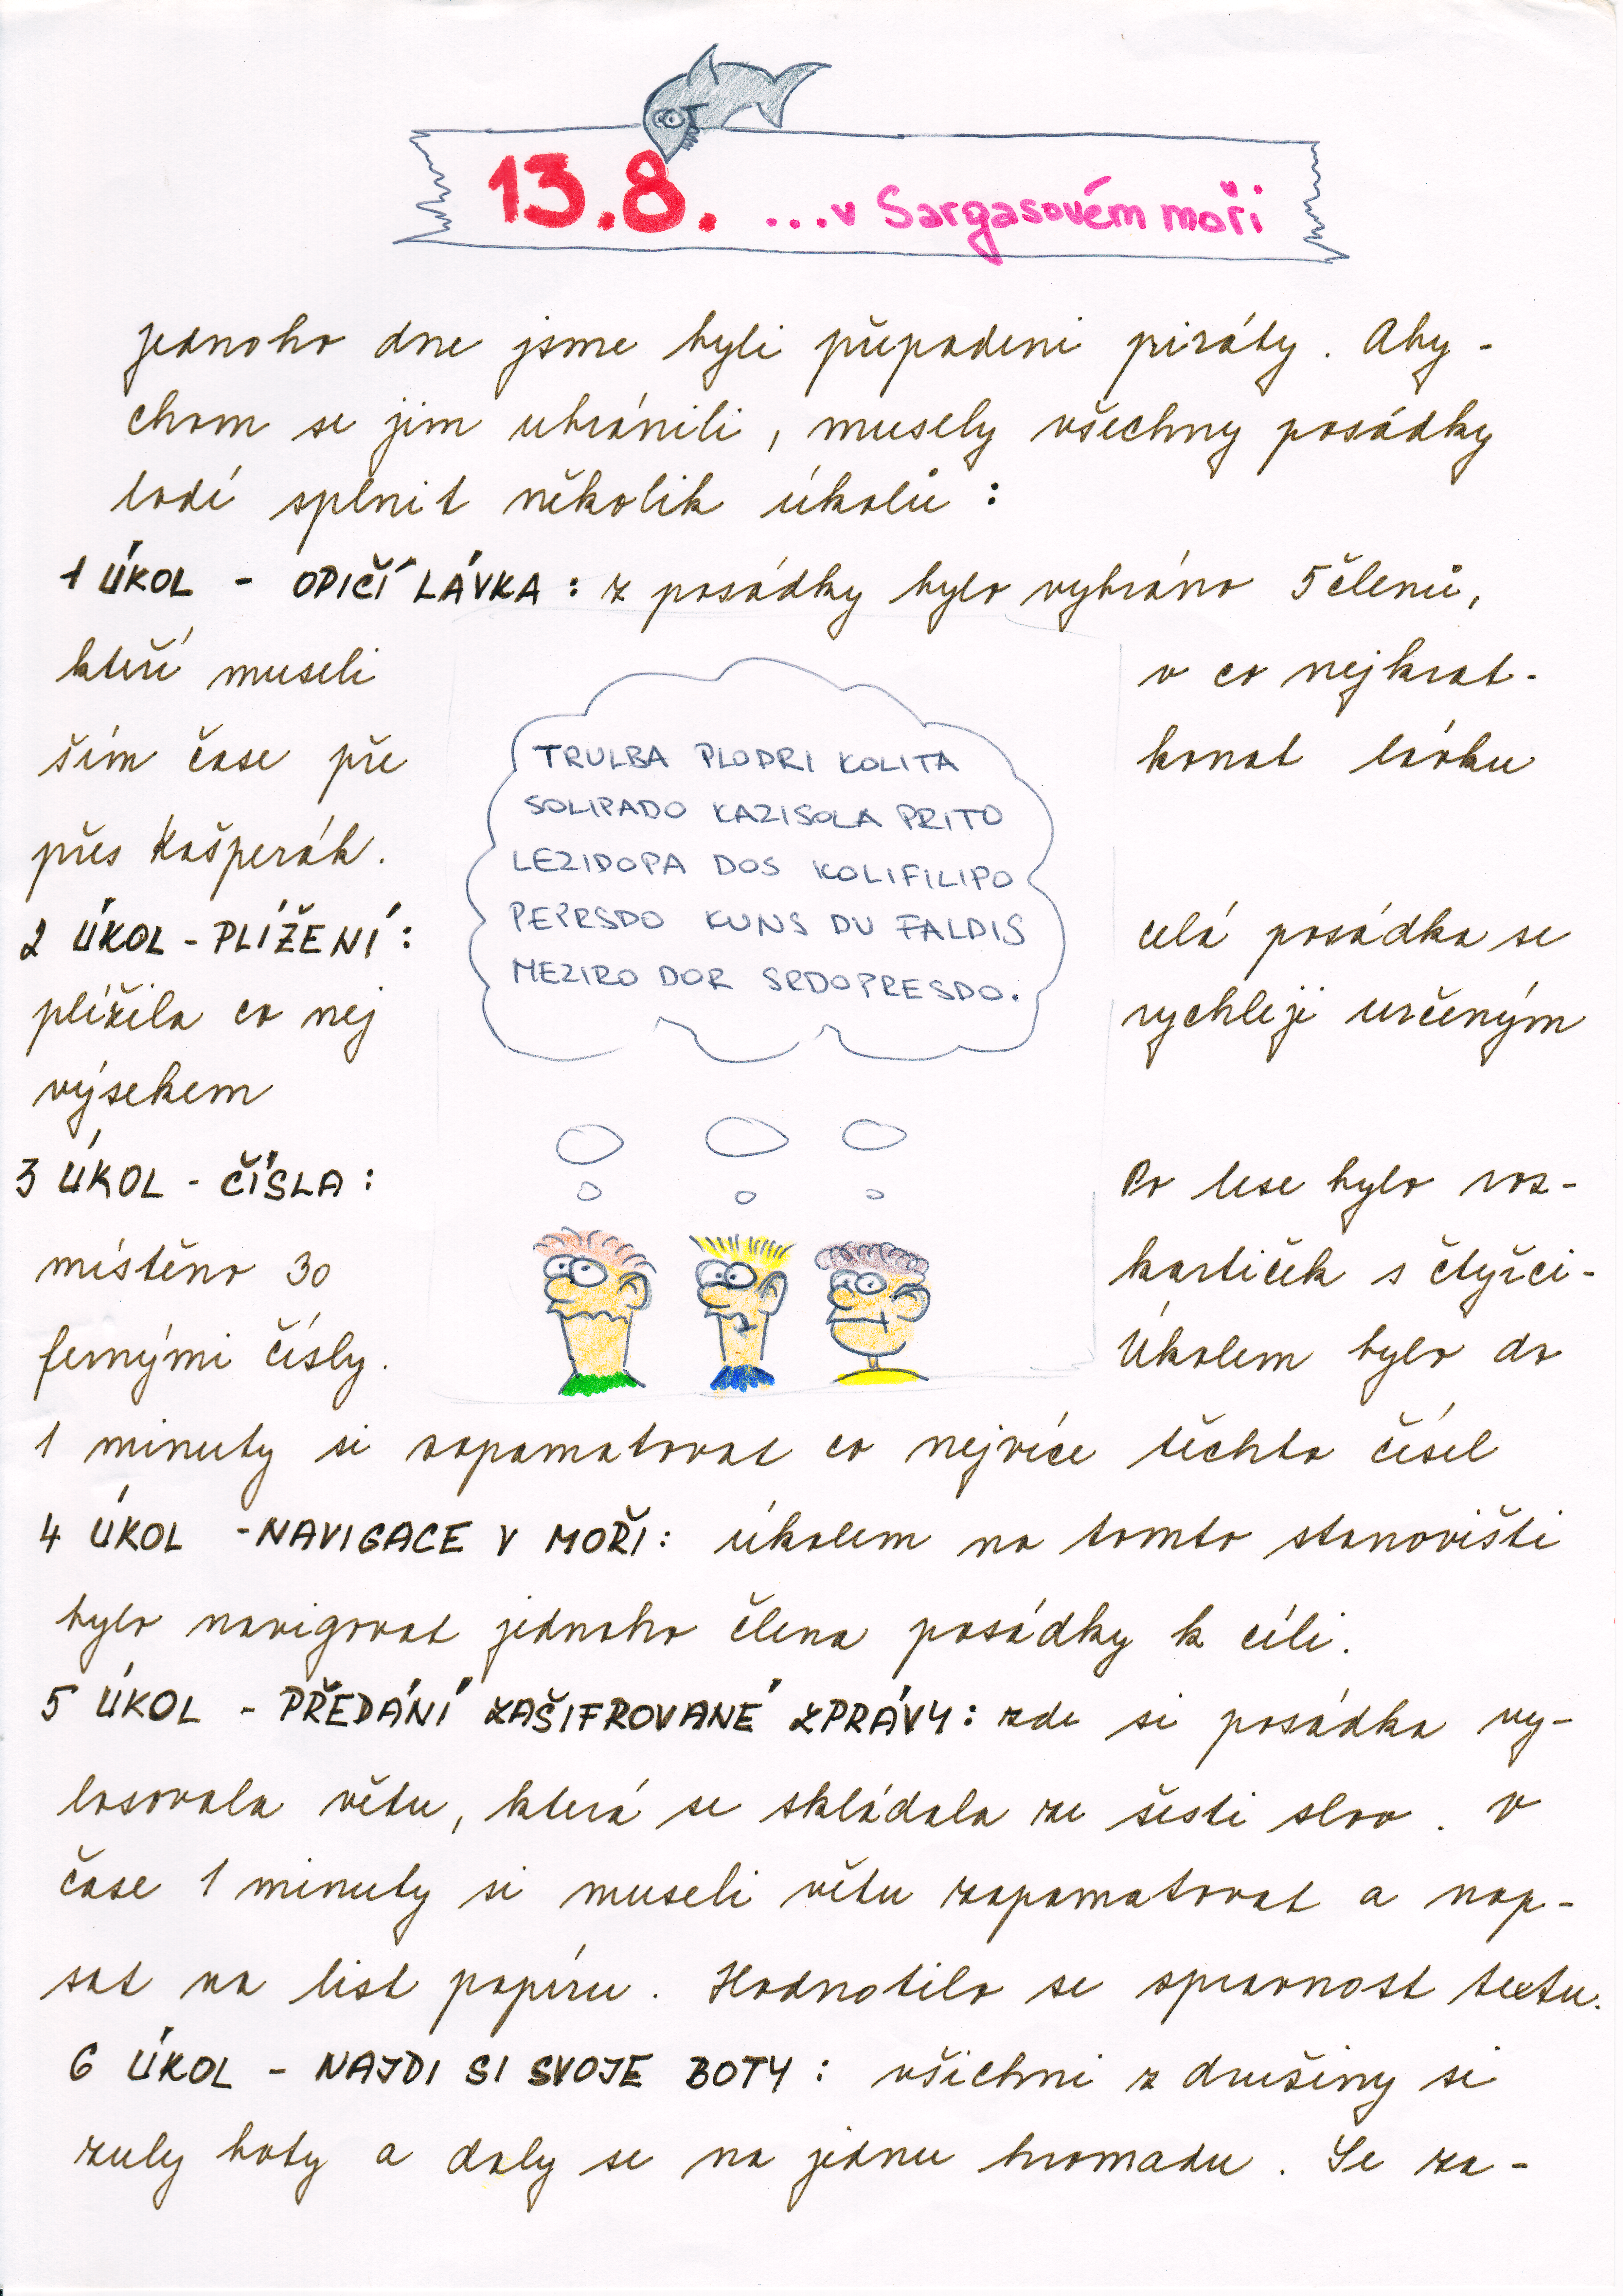 13.8. ...v Sargasovém moři
Jednoho dne jsme byli přepadeni piráty. Aby-
chom se jim ubránili, musely všechny posádky
lodí splnit několik úkolů :
1 ÚKOL - OPIČÍ LÁVKA : z posádky bylo vybráno 5 členů,
kteří museli v co nejkrat-
ším čase pře konat lávku
přes Kašperák.
2 ÚKOL - PLÍŽENÍ : celá posádka se
plížila co nej rychleji určeným
výsekem
3 ÚKOL - ČÍSLA : Po lese bylo roz-
místěno 30 kartiček s čtyřci-
fernými čísly. Úkolem bylo do
1 minuty si zapamatovat co nejvíce těchto čísel
TRULBA PLODRI KOLITA
SOLIPADO KAZISOLA PRITO
LEZIDOPA DOS KOLIFILIPO
PEPRSDO KUNS DU FALDIS
MEZIRO DOR SRDOPRESDO.
4 ÚKOL - NAVIGACE V MOŘI : úkolem na tomto stanovišti
bylo navigovat jednoho člena posádky k cíli.
5 ÚKOL - PŘEDÁNÍ ZAŠIFROVANÉ ZPRÁVY : zde si posádka vy-
losovala větu, která se skládala ze šesti slov. V
čase 1 minuty si museli větu zapamatovat a nap-
sat na list papíru. Hodnotilo se spravnost textu.
6 ÚKOL - NAJDI SI SVOJE BOTY : všichni z družiny si
zuly boty a daly se na jednu hromadu. Se za-